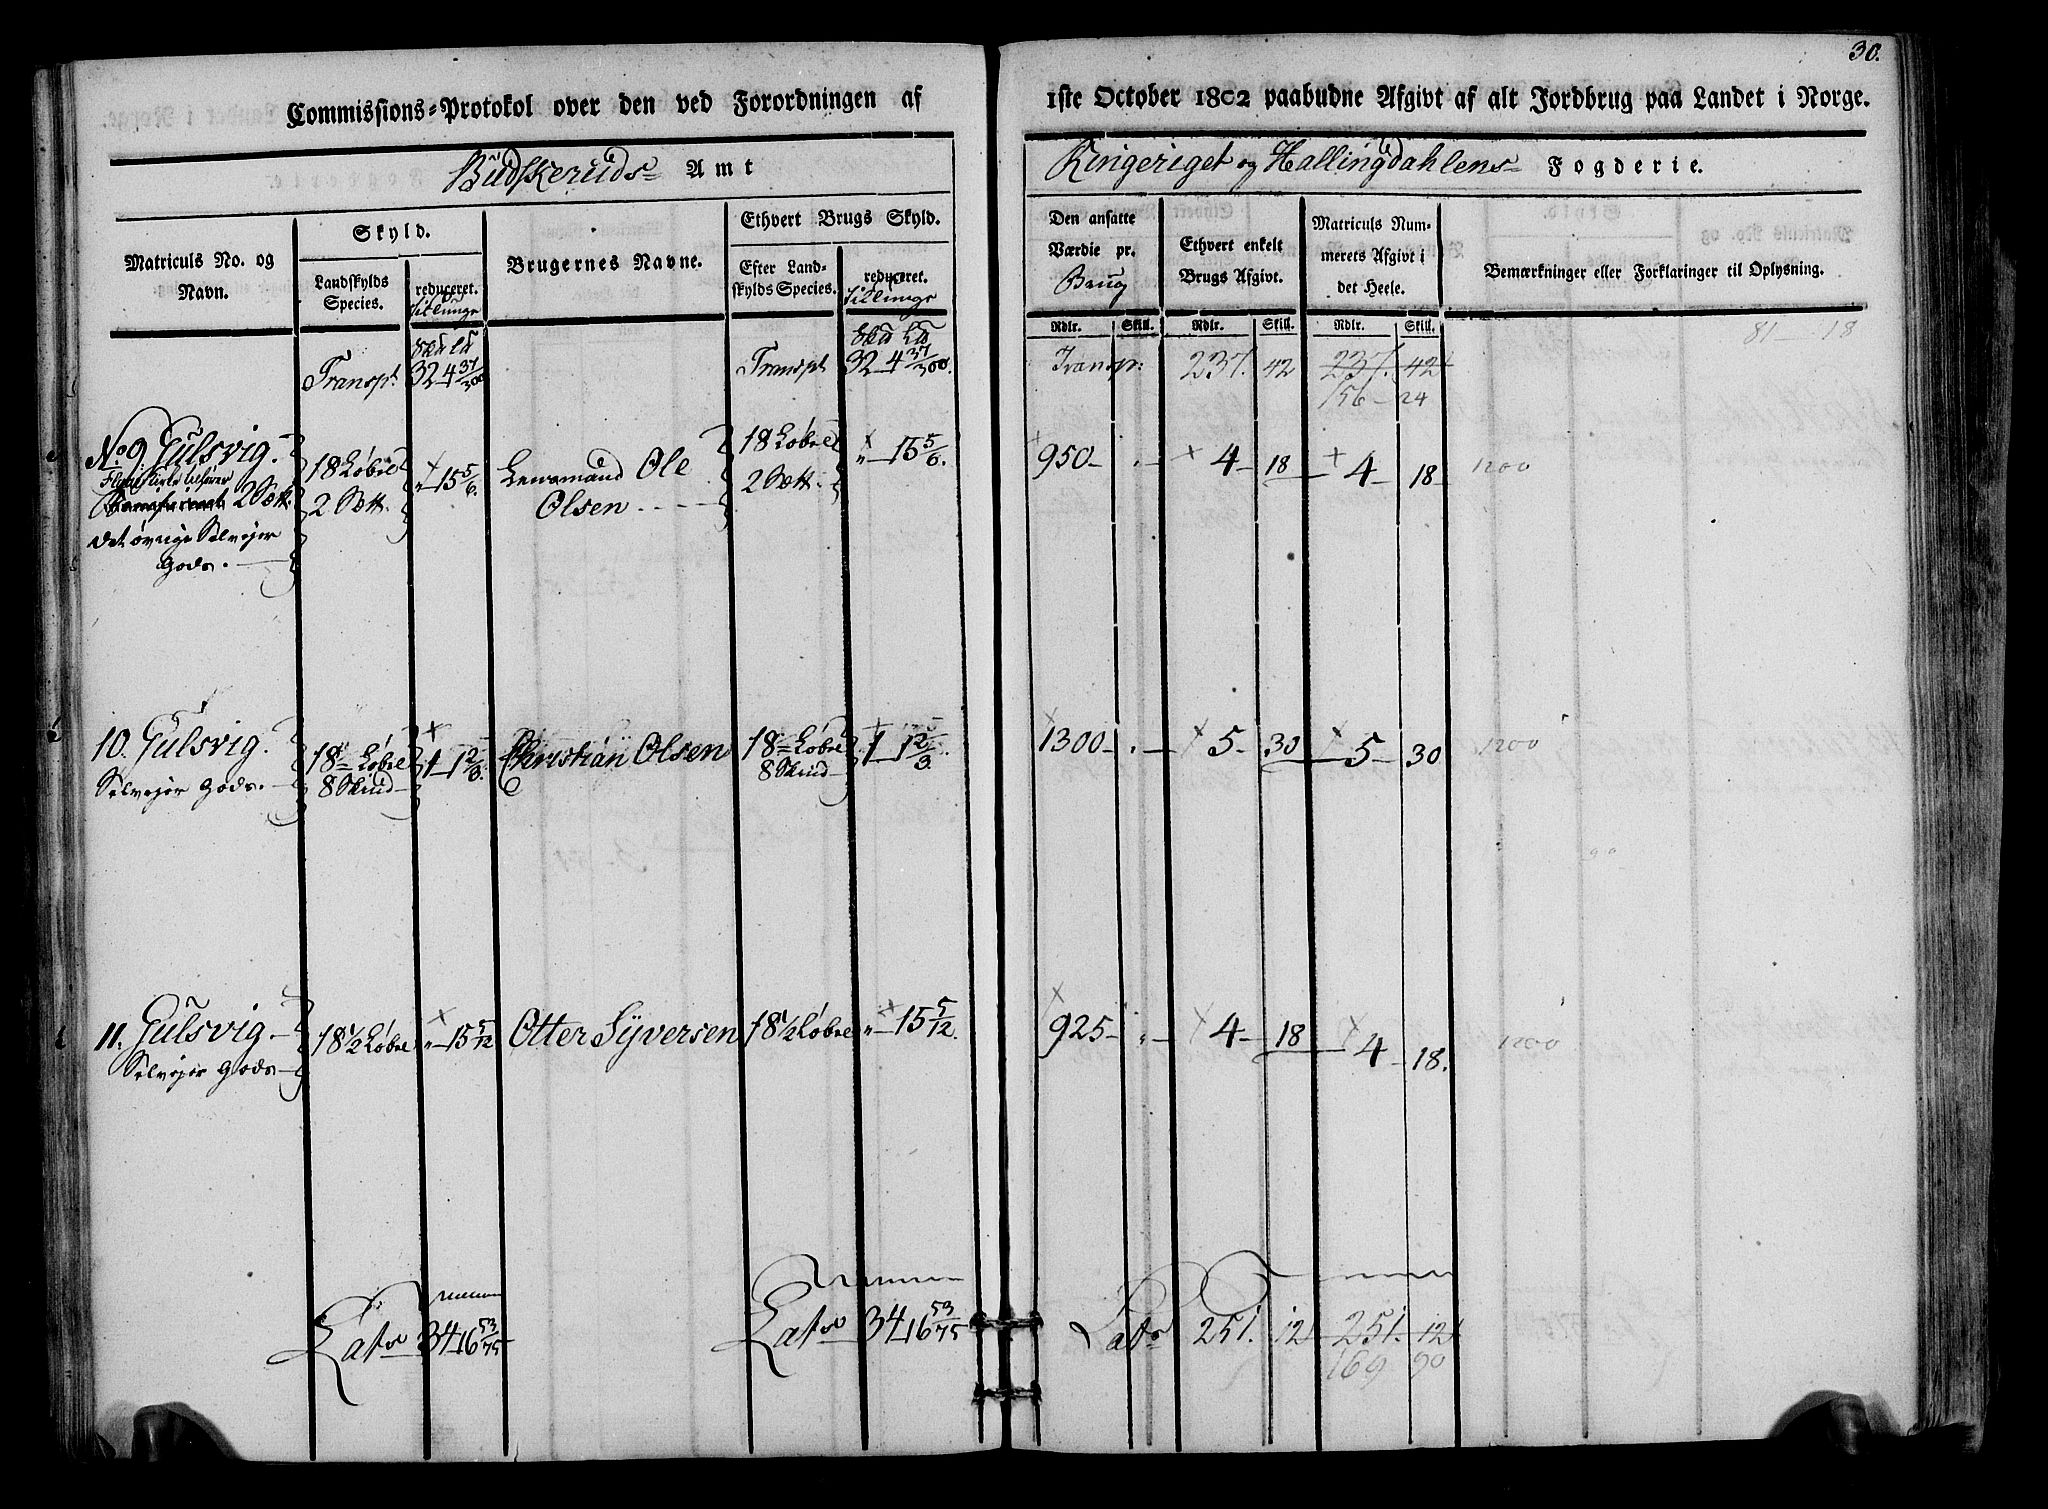 30.
Commissions-Protokol over den ved Forordningen af 1ste October 1802 paabudne Afgivt af alt Jordbrug paa Landet i Norge.
Budskeruds Amt
Ringeriget og Hallingdahlens Fogderie.
Matriculs No. og Navn.
Skyld.
Landskylds Species.
reduceret.
Brugernes Navne.
Ethvert Brugs Skyld.
Efter Landskylds Species.
reduceret.
Den ansatte Værdie pr. Brug
Ethvert enkelt Brugs Afgivt.
Matriculs Nummerets Afgivt i det Heele.
Bemærkninger eller Forklaringer til Oplysning.
Rdlr. Skill. Rdlr. Skill. Rdlr. Skill.
Transpt 32 4 37/300 Transpt 32 4 37/300. Transp: 237. 42 237. 42
156 - 24
81 - 18
No 9 Gulsvig. 18 Løbsl „ 15 5/6. Lensmand Ole 18 Løbsl „ 15 5/6. 950 - „ - 4 - 18 4 - 18 1200
2 Sættr. 2 Sættr. Olsen 2 Sættr.
det øvrige Selvejer
Gods.
10. Gulsvig. 18 Løbsl 1 1 2/3. Christian Olsen 18 Løbsl 1 1 2/3. 1300 - „ - 5 - 30 5 - 30 1200
Selvejer Gods. 8 Skind 8 Skind
11. Gulsvig 18 1/2 Løbsl „ 15 5/12 Otter Syversen 18 1/2 Løbsl „ 15 5/12. 925 - „ - 4 - 18 4 - 18. 1200
Selvejer Gods
Lats 34 16 53/75 Lats 34 16 53/75 Lats 251. 12 251. 12
169 90